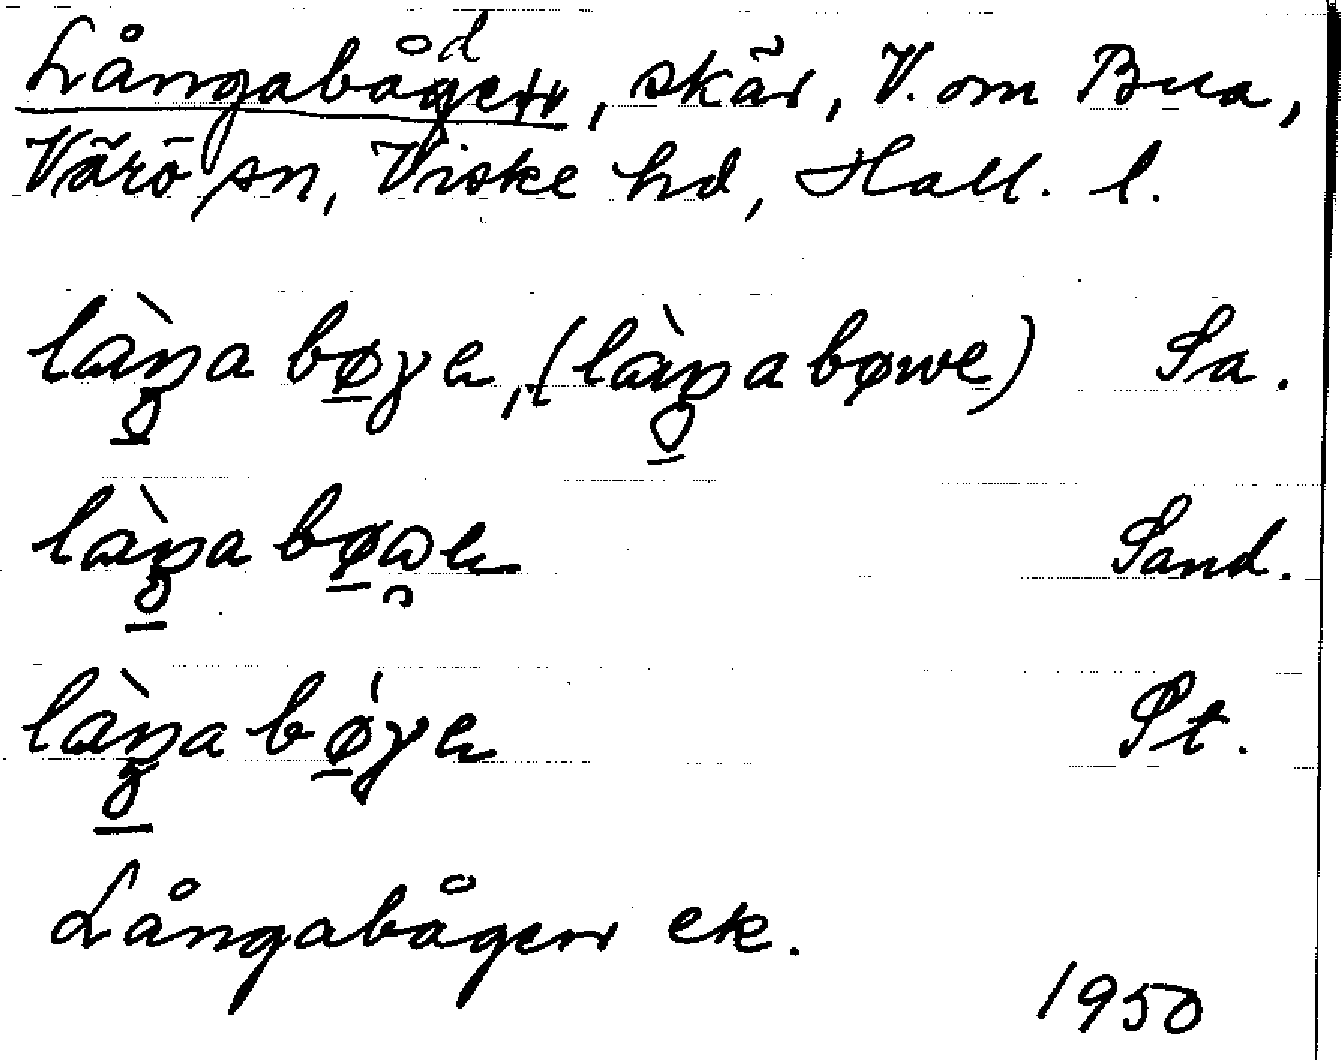 Långabåden, skär, V. om Bua,
Värö sn, Viske hd, Hall. l.
làŋa bøγe, (làŋa bøwe) Sa.
làŋa bøwe Sand.
làŋa bǿγe St.
Långabågen ek.
1950